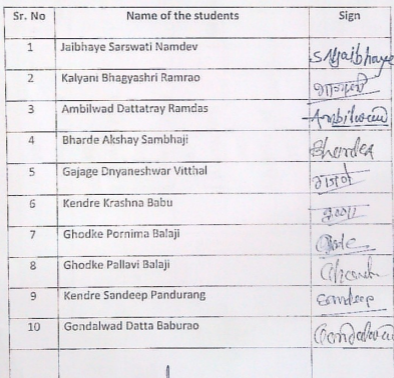 Sr. No Name of the students Sign
1 Jaibhaye Sarswati Namdev S.N.Jaibhaye
2 Kalyani Bhagyashri Ramrao
3 Ambilwad Dattatray Ramdas Ambilwad
4 Bharde Akshay Sambhaji Bhardea
5 Gajage Dnyaneshwar Vitthal
6 Kendre Krashna Babu
7 Ghodke Pornima Balaji
8 Ghodke Pallavi Balaji
9 Kendre Sandeep Pandurang Sandeep
10 Gondalwad Datta Baburao